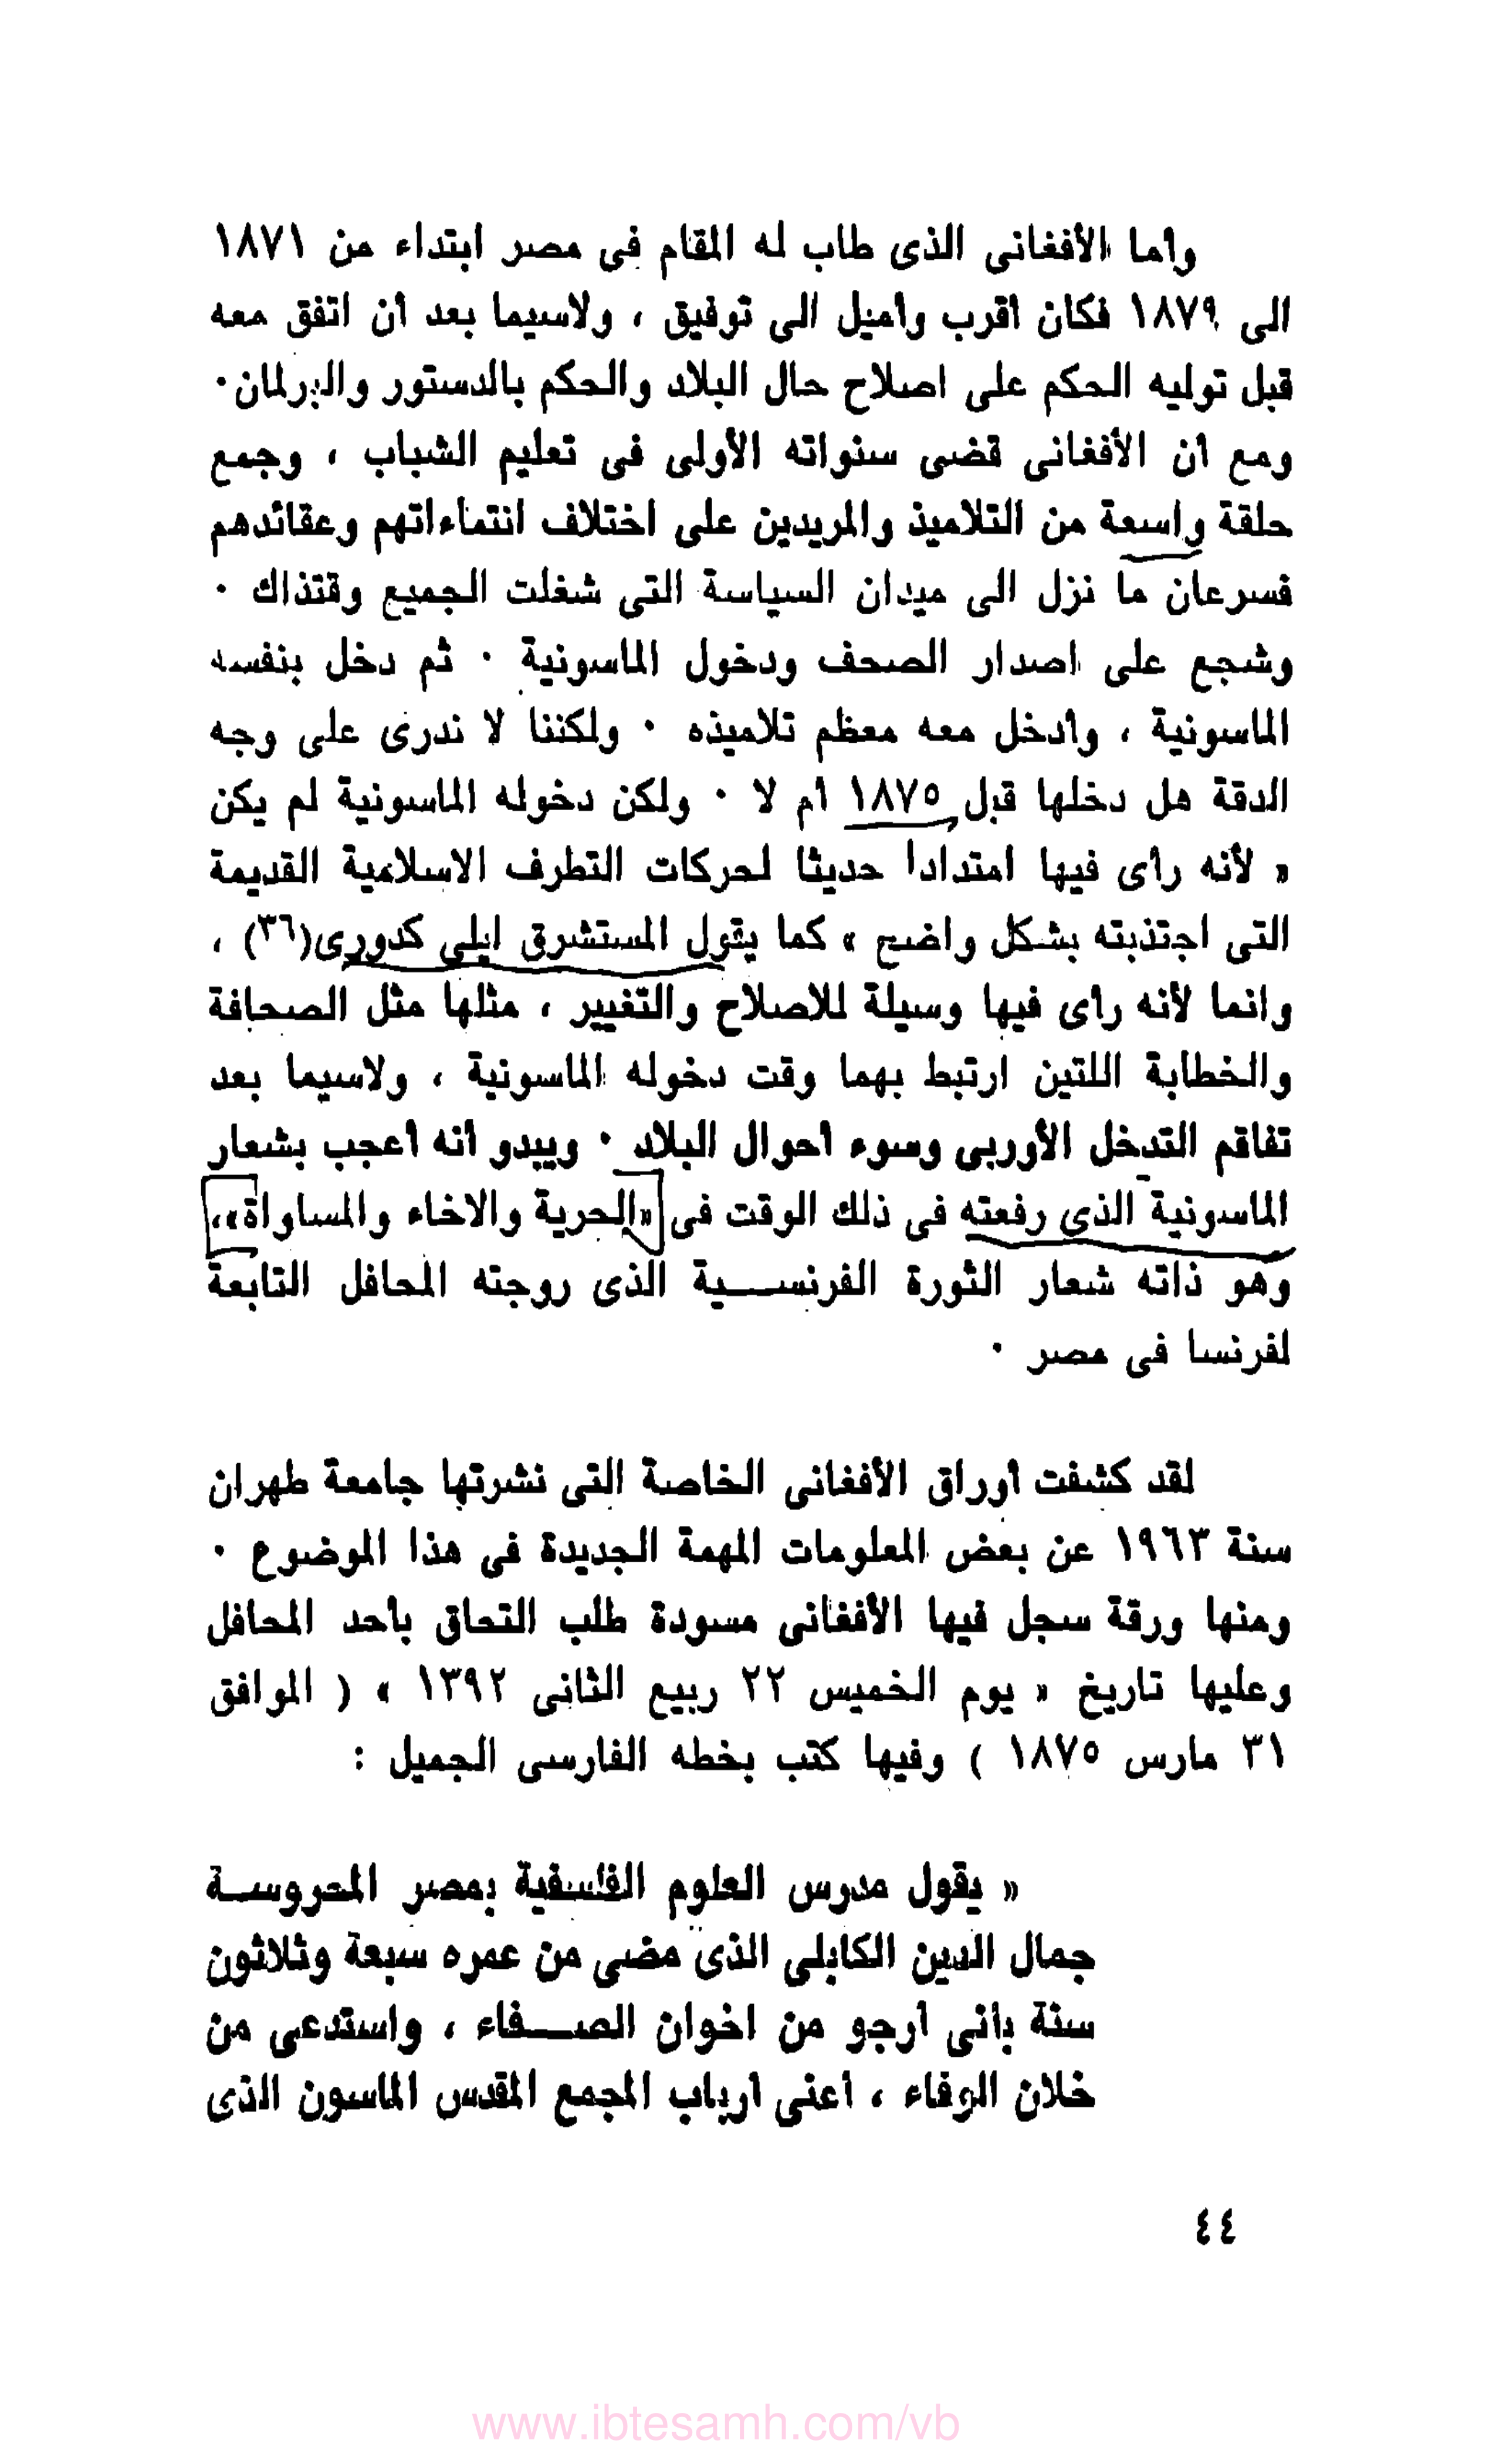 وأما الأفغانى الذى طاب له المقام فى مصر ابتداء من ١٨٧١
الى ١٨٧٩ فكان أقرب وأميل الى توفيق ، ولاسيما بعد أن اتفق معه
قبل توليه الحكم على اصلاح حال البلاد والحكم بالدستور والبرلمان·
ومع أن الأفغانى قضى سنواته الأولى فى تعليم الشباب ، وجمع
حلقة واسعة من التلاميذ والمريدين على اختلاف انتماءاتهم وعقائدهم
فسرعان ما نزل الى ميدان السياسة التى شغلت الجميع وقتذاك ·
وشجع على اصدار الصحف ودخول الماسونية · ثم دخل بنفسه
الماسونية ، وأدخل معه معظم تلاميذه · ولكننا لا ندرى على وجه
الدقة هل دخلها قبل ١٨٧٥ أم لا · ولكن دخوله الماسونية لم يكن
« لأنه رأى فيها امتدادا حديثا لحركات التطرف الاسلامية القديمة
التى اجتذبته بشكل واضح » كما يقول المستشرق ايلى كدورى(٣٦) ،
وانما لأنه رأى فيها وسيلة للاصلاح والتغيير ، مثلها مثل الصحافة
والخطابة اللتين ارتبط بهما وقت دخوله الماسونية ، ولاسيما بعد
تفاقم التدخل الأوربى وسوء أحوال البلاد · ويبدو أنه أعجب بشعار
الماسونية الذى رفعته فى ذلك الوقت فى «الحرية والاخاء والمساواة»،
وهو ذاته شعار الثورة الفرنســـية الذى روجته المحافل التابعة
لفرنسا فى مصر ·
لقد كشفت أوراق الأفغانى الخاصة التى نشرتها جامعة طهران
سنة ١٩٦٣ عن بعض المعلومات المهمة الجديدة فى هذا الموضوع ·
ومنها ورقة سجل فيها الأفغانى مسودة طلب التحاق بأحد المحافل
وعليها تاريخ « يوم الخميس ٢٢ ربيع الثانى ١٣٩٢ » ( الموافق
٣١ مارس ١٨٧٥ ) وفيها كتب بخطه الفارسى الجميل :
« يقول مدرس العلوم الفلسفية بمصر المحروســة
جمال الدين الكابلى الذى مضى من عمره سبعة وثلاثون
سنة بأنى أرجو من اخوان الصـــفاء ، واستدعى من
خلان الوفاء ، أعنى أرباب المجمع المقدس الماسون الذى
٤٤
www.ibtesamh.com/vb